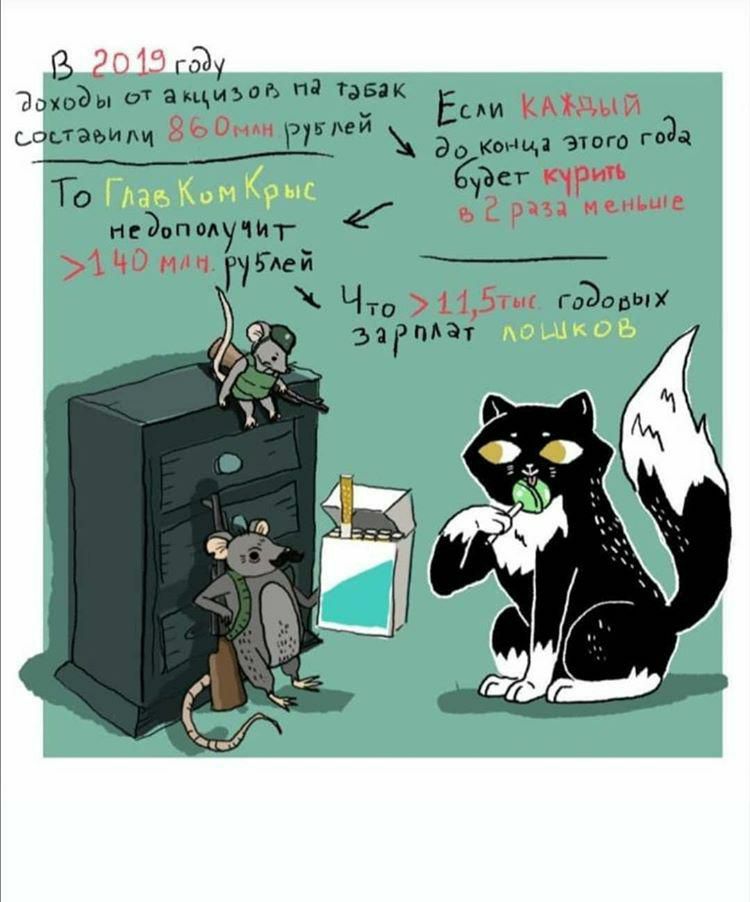 В 2019 году
доходы от акцизов на табак
составили 860 млн рублей
Если КАЖДЫЙ
до конца этого года
будет курить
в 2 раза меньше
То ГлавКомКрыс
недополучит
>140 млн. рублей
Что >11,5 тыс. годовых
зарплат лошков